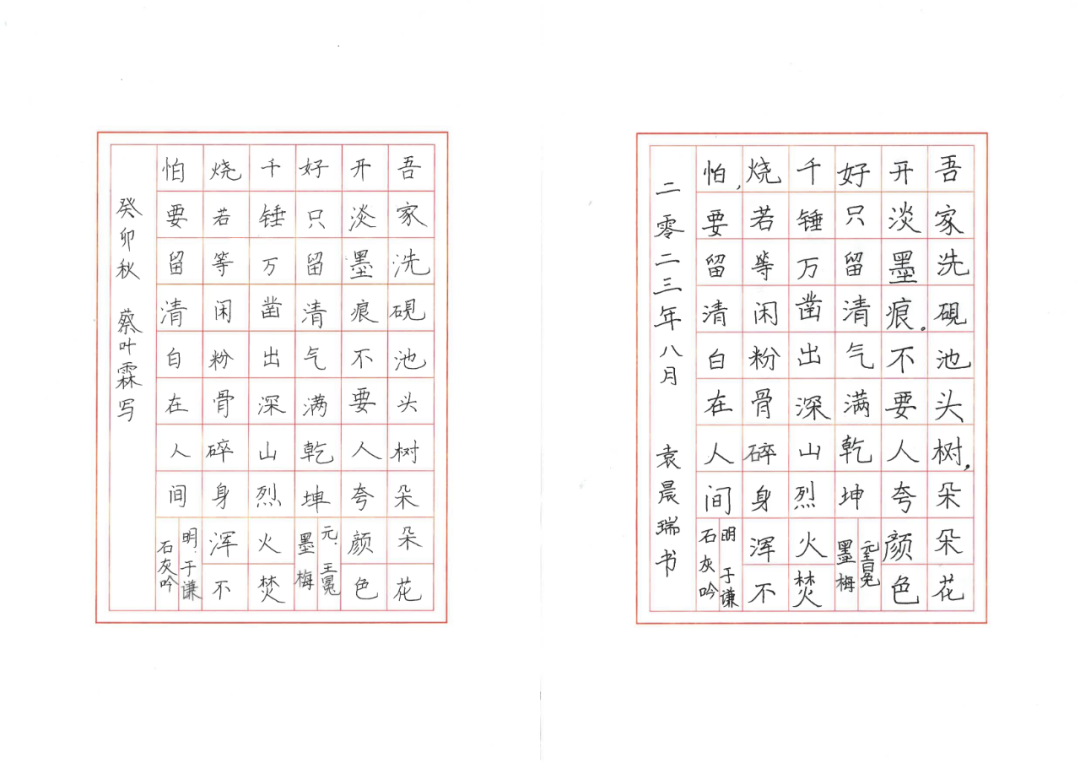 吾家洗硯池头树朵朵花
开淡墨痕不要人夸颜色
好只留清气满乾坤
元.王冕
墨梅
千锤万凿出深山烈火焚
烧若等闲粉骨碎身浑不
怕要留清白在人间
明.于谦
石灰吟
癸卯秋 蔡叶霖写
吾家洗硯池头树，朵朵花
开淡墨痕。不要人夸颜色
好只留清气满乾坤
元王冕
墨梅
千锤万凿出深山烈火焚
烧若等闲粉骨碎身浑不
怕，要留清白在人间
明 于谦
石灰吟
二零二三年八月 袁晨瑞书